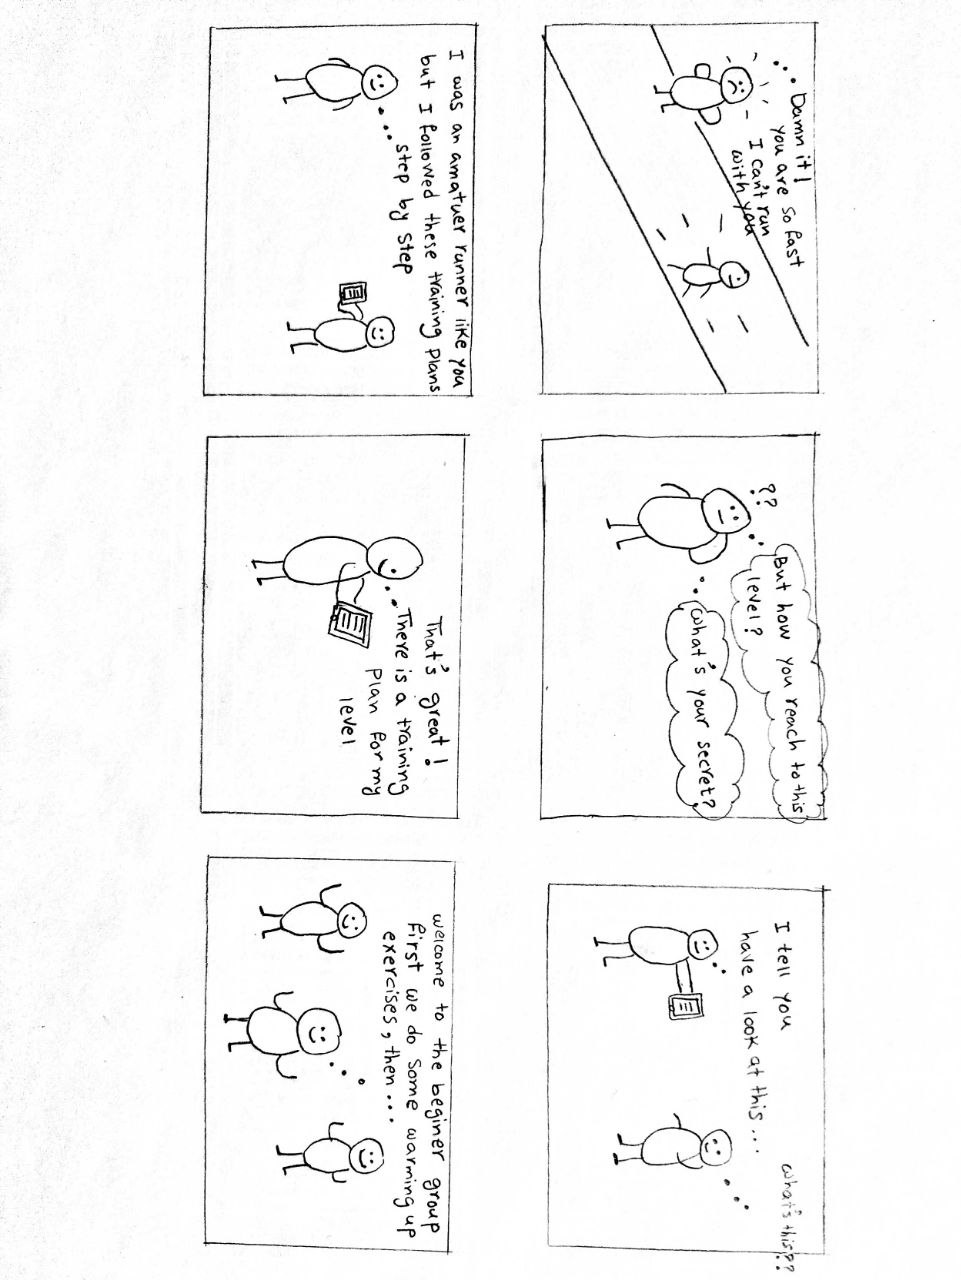 Damn it!
you are so fast
I can't run
with you
??
But how you reach to this
level?
What's your secret?
I tell you
have a look at this...
what's this??
I was an amatuer runner like you
but I followed these training plans
step by step
That's great!
There is a training
plan for my
level
welcome to the beginer group
first we do some warming up
exercises, then...